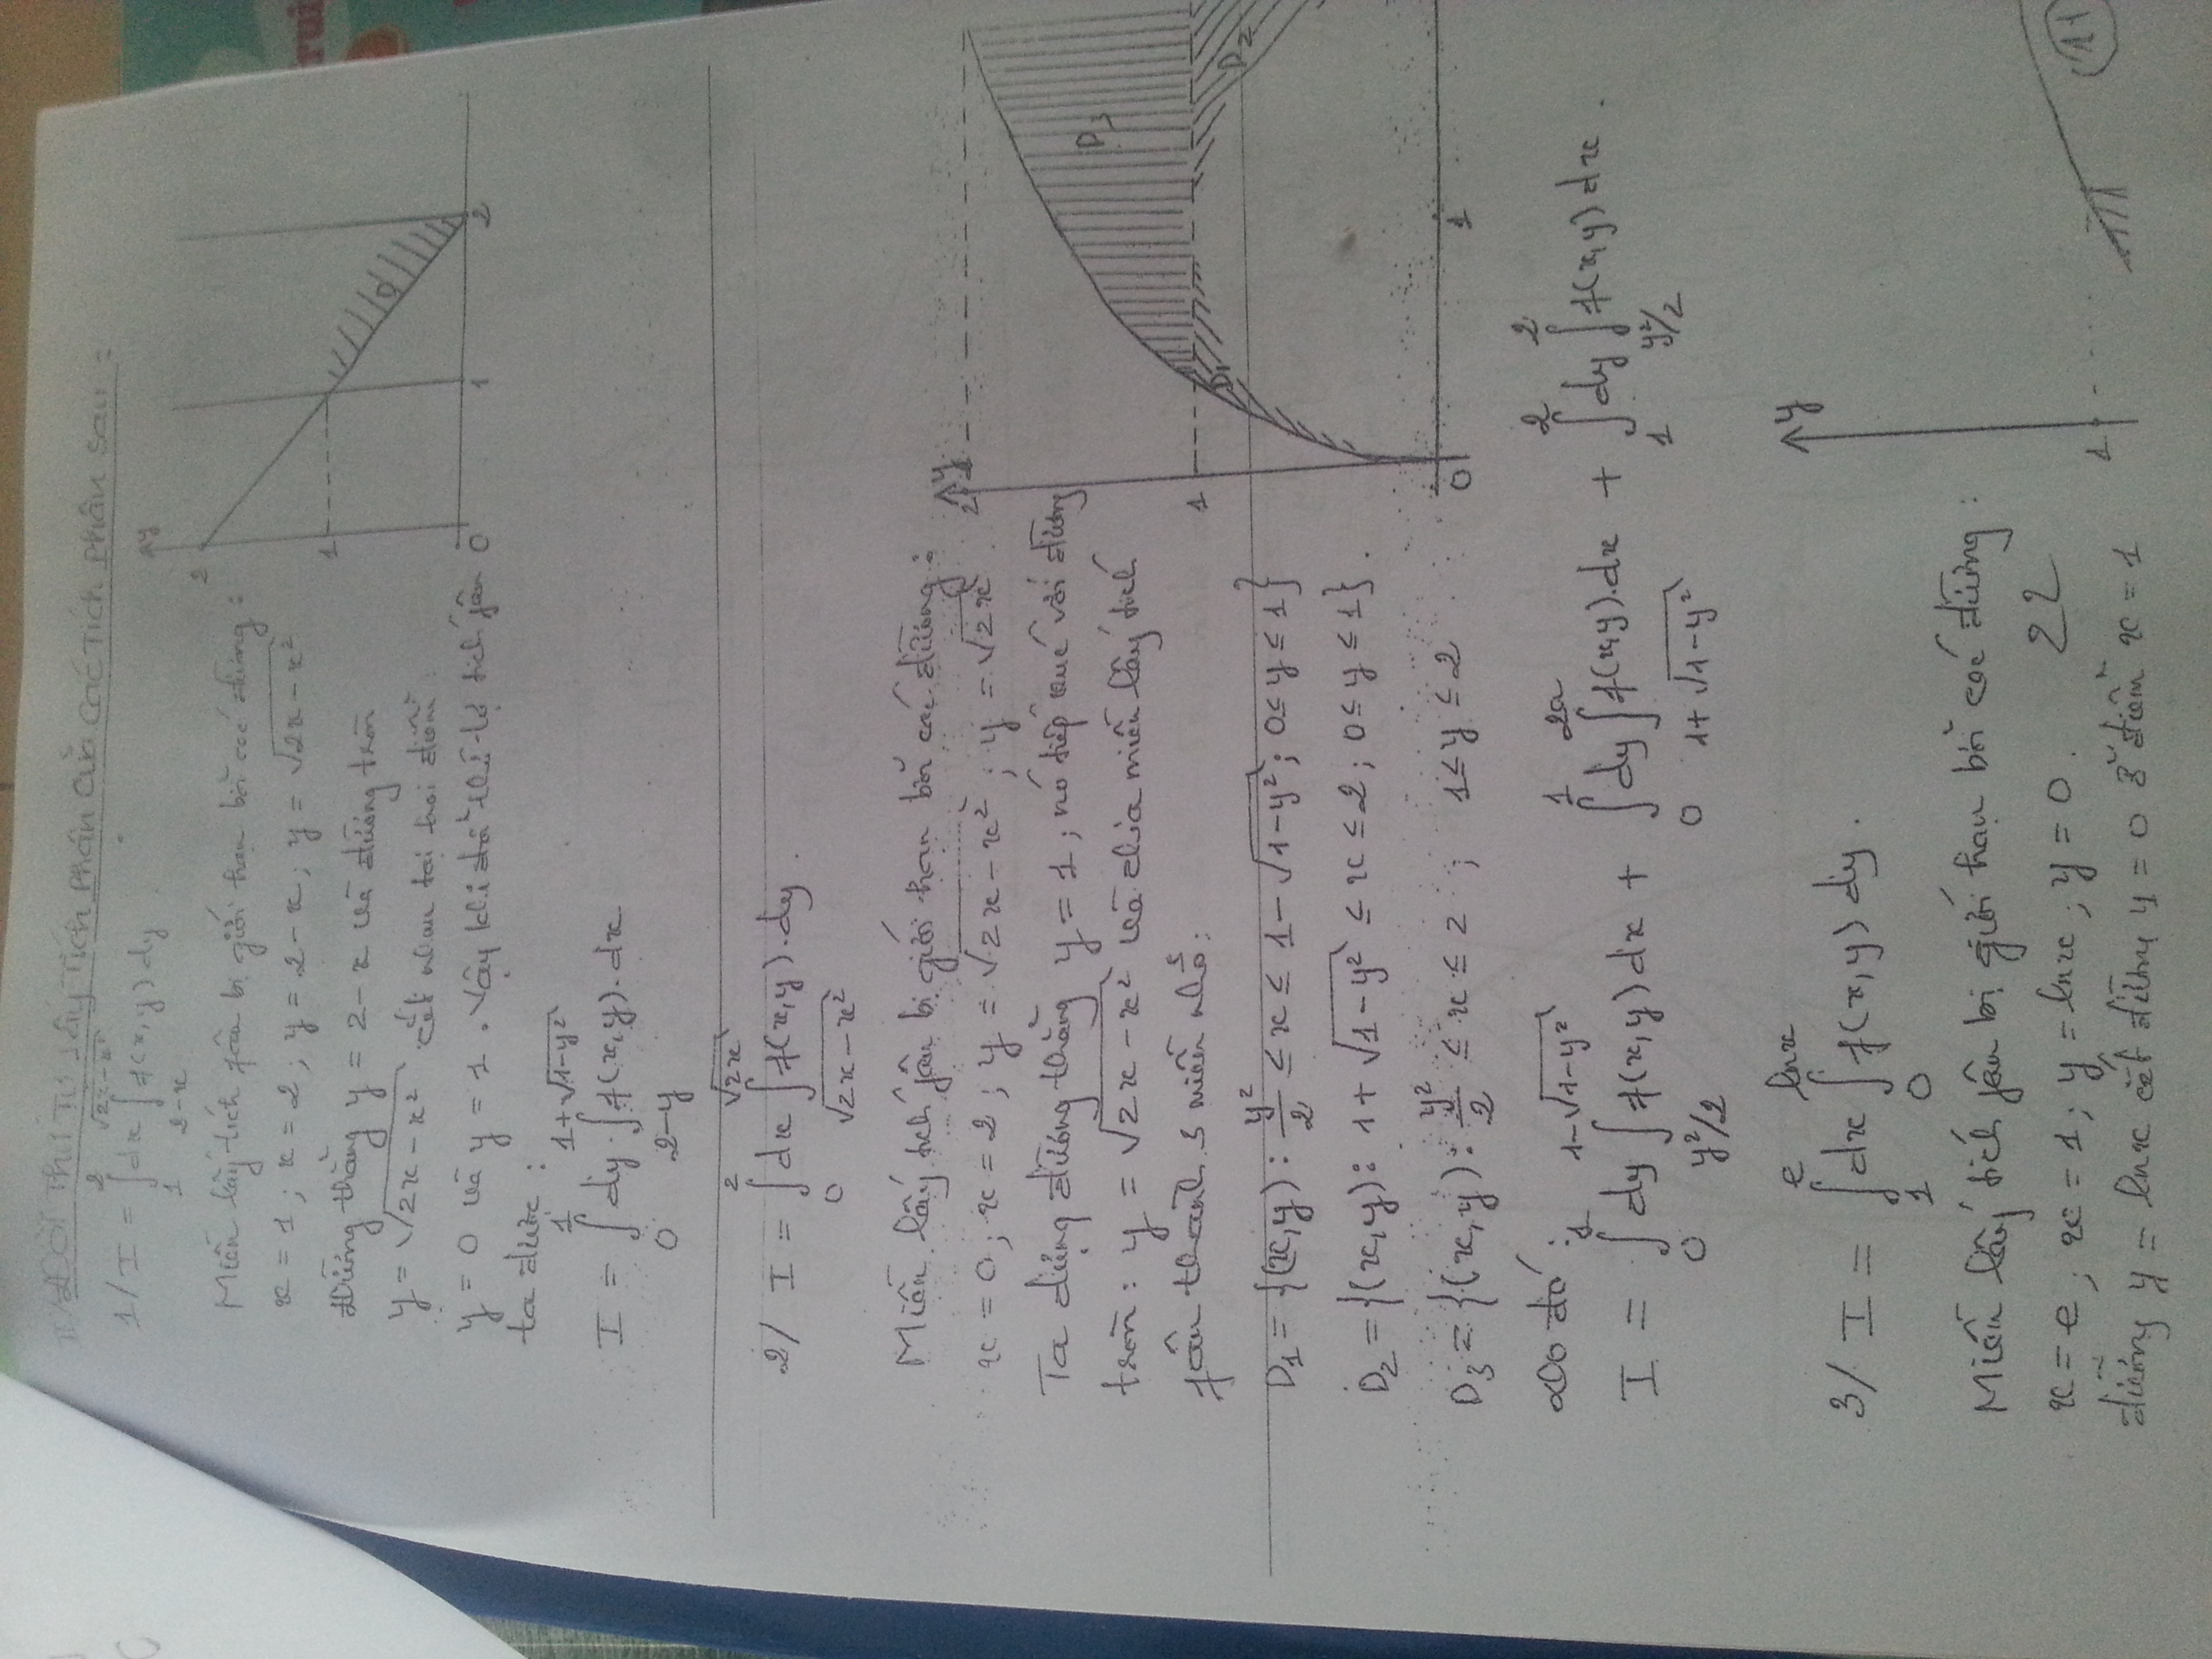 II/ Đổi Thứ Tự Lấy Tích Phân Của Các Tích Phân Sau :
1/ I = ∫₁² dx ∫_{2-x}^{√(2x-x²)} f(x,y) dy
Miền lấy tích fân bị giới hạn bởi các đường :
x = 1 ; x = 2 ; y = 2-x ; y = √(2x-x²)
Đường thẳng y = 2-x và đường tròn
y = √(2x-x²) cắt nhau tại hai điểm :
y = 0 và y = 1 . Vậy khi đổi thứ tự tích fân
ta được :
I = ∫₀¹ dy . ∫_{2-y}^{1+√(1-y²)} f(x,y).dx
y
2
1
d
0 1 2
2/ I = ∫₀² dx ∫_{√(2x-x²)}^{√(2x)} f(x,y).dy .
Miền lấy tích fân bị giới hạn bởi các đường :
x = 0 ; x = 2 ; y = √(2x-x²) ; y = √(2x) .
Ta dựng đường thẳng y = 1 ; nó tiếp xúc với đường
tròn : y = √(2x-x²) và chia miền lấy tích
fân thành 3 miền nhỏ :
D₁ = {(x,y) : y²/2 ≤ x ≤ 1-√(1-y²) ; 0 ≤ y ≤ 1}
D₂ = {(x,y) : 1+√(1-y²) ≤ x ≤ 2 ; 0 ≤ y ≤ 1} .
D₃ = {(x,y) : y²/2 ≤ x ≤ 2 ; 1 ≤ y ≤ 2
y
2
D₃
1
D₁ D₂
0 1
Do đó :
I = ∫₀¹ dy ∫_{y²/2}^{1-√(1-y²)} f(x,y) dx + ∫₀¹ dy ∫_{1+√(1-y²)}^{2a} f(x,y).dx + ∫₁² dy ∫_{y²/2}^{2} f(x,y) dx .
3/ I = ∫₁ᵉ dx ∫₀^{lnx} f(x,y) dy .
Miền lấy tích fân bị giới hạn bởi các đường :
x = e ; x = 1 ; y = lnx ; y = 0 .
22
đường y = lnx cắt đường y = 0 ở điểm x = 1
y
1